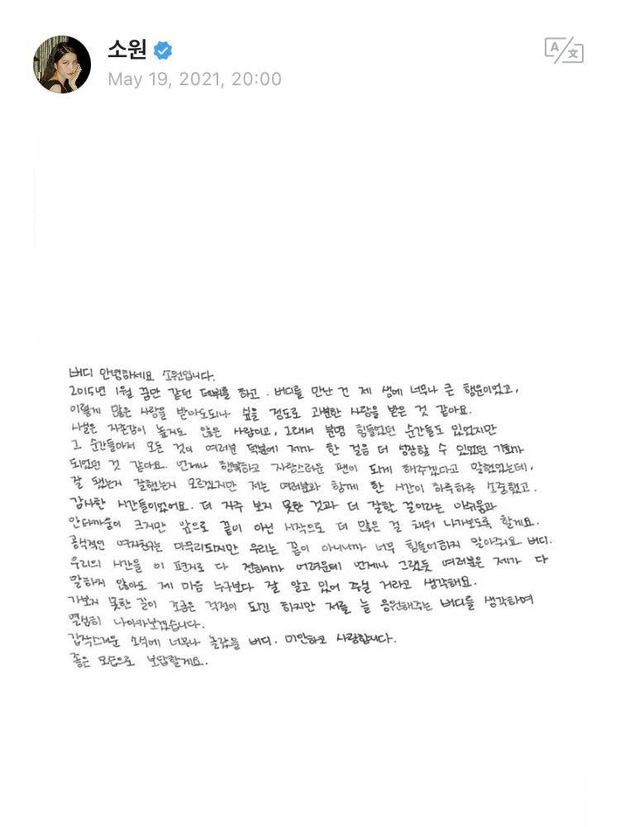 소원
May 19, 2021, 20:00
버디 안녕하세요 소원입니다.
2015년 1월 꿈만 같던 데뷔를 하고. 버디를 만난 건 제 생에 너무나 큰 행운이었고,
이렇게 많은 사랑을 받아도되나 싶을 정도로 과분한 사랑을 받은 것 같아요.
사실은 자존감이 높지도 않은 사람이고, 그래서 분명 힘들었던 순간들도 있었지만
그 순간들마저 모든 것이 여러분 덕분에 제가 한 걸음 더 성장할 수 있었던 기회가
되었던 것 같아요. 언제나 행복하고 자랑스러운 팬이 되게 해주겠다고 말했었는데,
잘 됐는지 잘했는지 모르겠지만 저는 여러분과 함께 한 시간이 하루하루 소중했고.
감사한 시간들이었어요. 더 자주 보지 못한 것과 더 잘할 걸이라는 아쉬움과
안타까움이 크지만 앞으로 끝이 아닌 시작으로 더 많은 걸 채워 나가보도록 할게요.
공식적인 여자친구는 마무리되지만 우리는 끝이 아니니까 너무 힘들어하지 말아주세요 버디.
우리의 시간을 이 편지로 다 전하기가 어려운데 언제나 그랬듯 여러분은 제가 다
말하지 않아도 제 마음 누구보다 잘 알고 있어 주실 거라고 생각해요.
가보지 못한 길이 조금은 걱정이 되긴 하지만 저를 늘 응원해주는 버디를 생각하며
열심히 나아가보겠습니다.
갑작스러운 소식에 너무나 놀랐을 버디. 미안하고 사랑합니다.
좋은 모습으로 보답할게요.